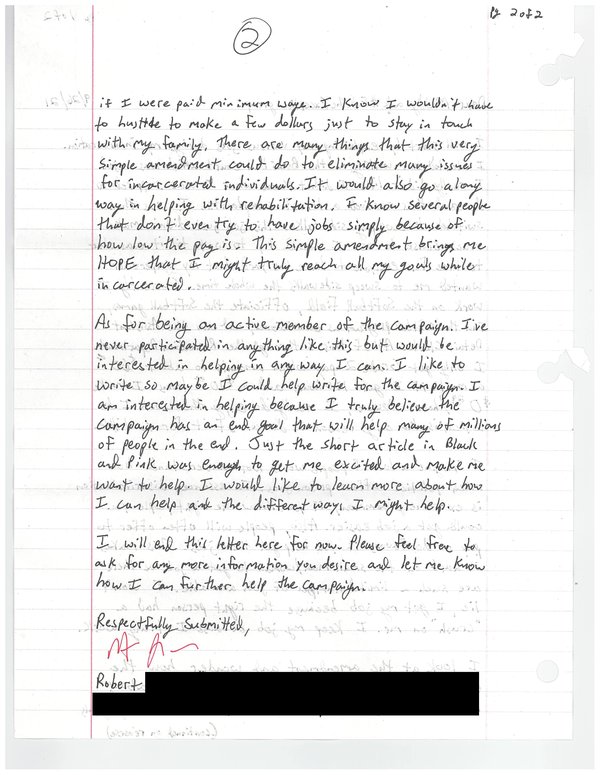 Pg 2 of 2
2
if I were paid minimum wage. I know I wouldn't have
to hustle to make a few dollars just to stay in touch
with my family. There are many things that this very
simple amendment could do to eliminate many issues
for incarcerated individuals. It would also go a long
way in helping with rehabilitation. I know several people
that don't even try to have jobs simply because of
how low the pay is. This simple amendment brings me
HOPE that I might truly reach all my goals while
incarcerated.
As for being an active member of the campaign. I've
never participated in anything like this but would be
interested in helping in any way I can. I like to
write so maybe I could help write for the campaign. I
am interested in helping because I truly believe the
campaign has an end goal that will help many of millions
of people in the end. Just the short article in Black
and Pink was enough to get me excited and make me
want to help. I would like to learn more about how
I can help and the different ways I might help.
I will end this letter here for now. Please feel free to
ask for any more information you desire and let me know
how I can further help the campaign.
Respectfully Submitted,
Robert